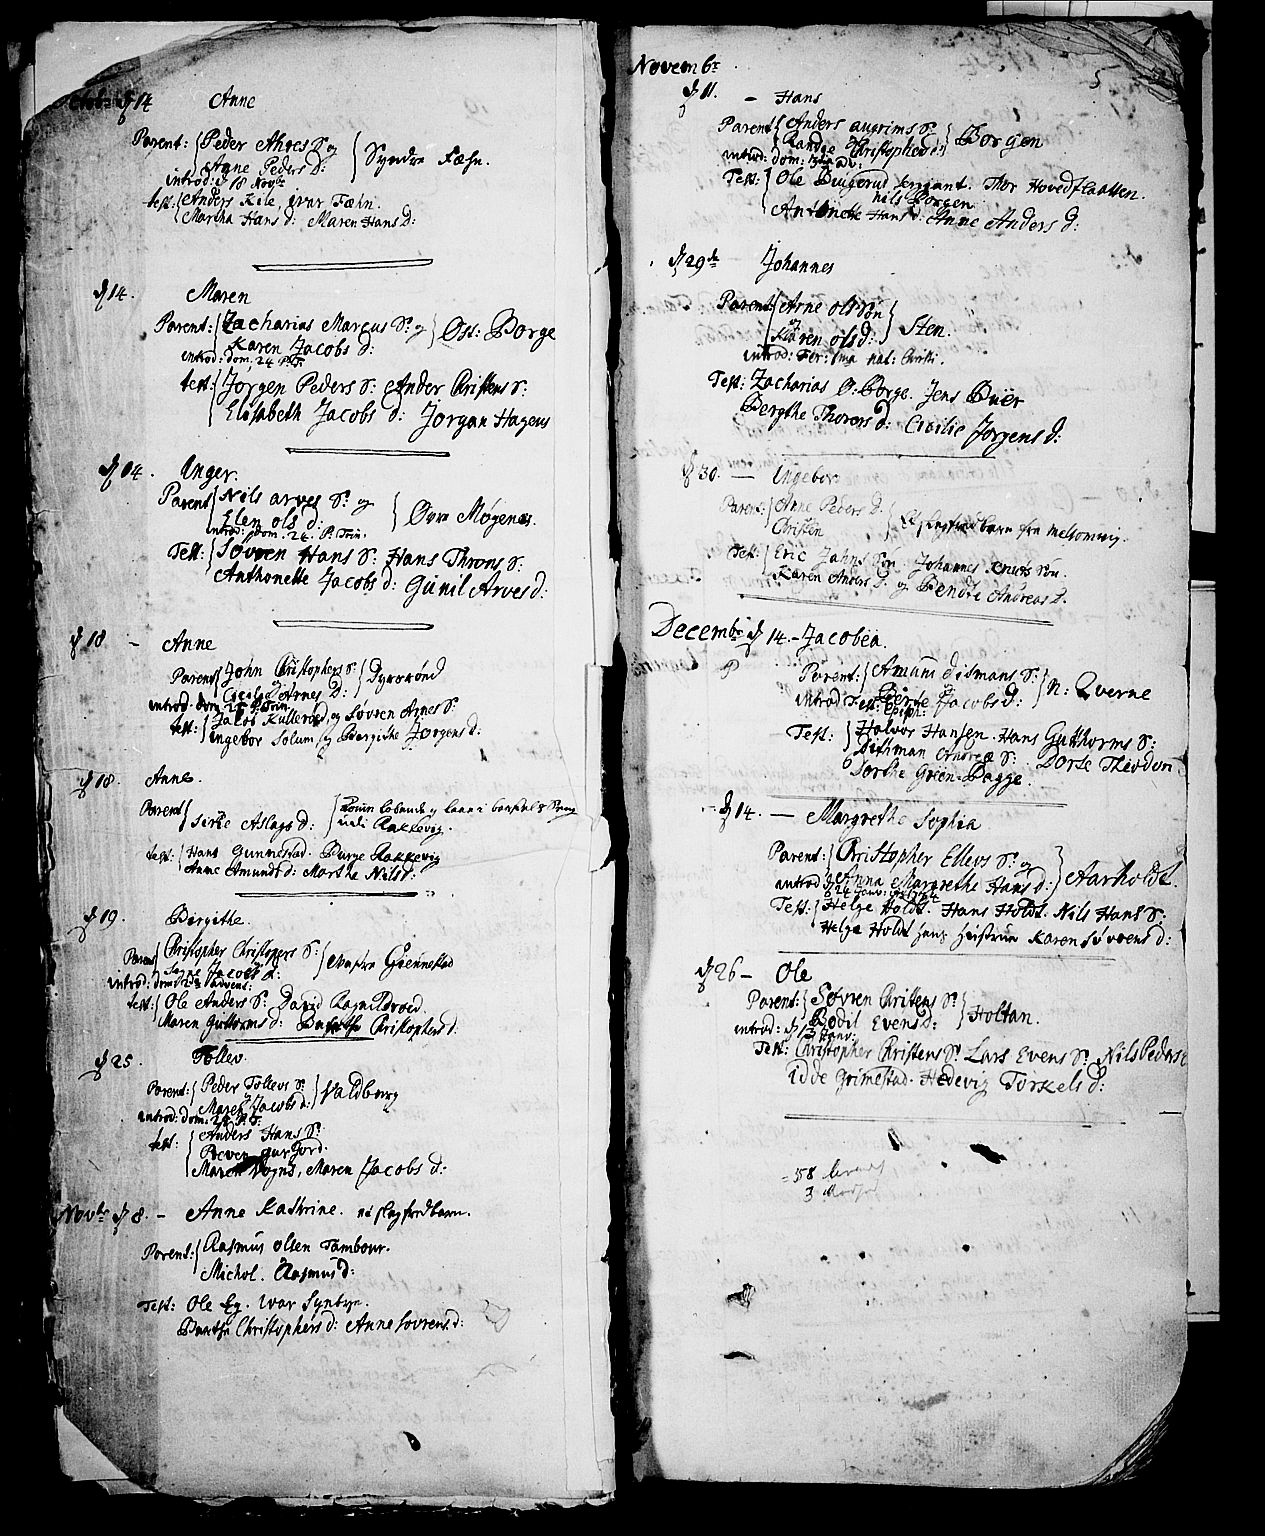 d 14 Anne
Parent: Peder Ahres S: og
Anne Peders D: Syndre Fæhn.
introd: d 18 Novbr
test: Anders Kile, ivar Fæhn.
Martha Hans d: Maren Hans D:
d 14. Maren
Parent: Zacharias Marcus S: og
Karen Jacobs d: Øst: Borge
introd: dom: 24 P. T.
test: Jörgen Peders S: Ander Christens S:
Elisabeth Jacobs d: Jörgan Hagens
d 14. Unger.
Parent Nils arves S: og
Elen ols d: Øvre Møgenes.
introd: dom. 24. P. Trin.
Test: Sövren Hans S: Hans Throns S:
Anthonette Jacobs d: Gunil Arves d:
d 18 - Anne
Parent John Christophers S:
og Arnes D:
introd. dom 25 P. Trin.
test: Jacob Kullerød og Søvren Arnes S:
ingebor Solum og Bergithe Jörgens d:
d 18. Anne.
Parent
Sirie Aslags d:
Rakkevig.
test: Hans Gunnestad. Børge Rakkevig
Anne Amunds d: Marthe Nils d:
d 19. Birgithe.
Parent Christopher Christopers S:
Jacobs d: Giennestad
introd: dom 2da advent:
test: Ole Anders S: David Ragnildrød.
Maren Guttorms d: Christophers d:
d 25. Tollev.
Parent: Peder Tollevs S:
Maren Jacobs d: Valdberg
introd: dom: 24 P. T.
test: Anders Hans S:
Maren Maren Jacobs d:
Novbr d 8. - Anne Kathrine. nè slagfredbarn.
Parent: Rasmus olsen Tambour.
Michol. Rasmus d:
Test: Ole Eg. Ivar Synbye.
Christophers d: Anne Sovrens d:
Novembr
d 11. - Hans
Parent Anders augrims S:
Randge Christophers d: Borgen
introd: dom: 3tia adv:
Test: Ole sergiant. Thor Hovedflaatten.
nils Borgen
Antonette Hans d: Anne Anders d:
d 29de Johannes
Parent Arne olsSøn
og Karen ols d: Sten.
introd: Fer: 1ma nat: Christi.
Test: Zacharias Ø: Borge. Jens Buer
Bergthe Thorers d: Cicilie Jorgens d:
d 30. - Ingebor
Parent: Anne Peders D.
Christen Et slagfredbarn fra Melsomvig.
Test: Eric Jahns Søn Johannes Knuts Søn.
Karen Anders D. og Bendte Andreas D.
Decembr d 14. - Jacobea.
Parent: Amund ditmans S:
Berte Jacobs d: N: Qverne
introd: Fest: Epiph:
Test: Halvor Hansen. Hans Gutthorms S:
Dithman Andreæ S: Dorte
Dorthe Grøen-Bagge.
d 14. - Margrethe Sophia
Parent: Christopher Ellevs S: og
Anna Margrethe Hans d: Aarholdt.
introd d 24 Janv:
Test: Helge Holdt. Hans Holdt. Nils Hans S:
Helge Holdt Karen Søvrens d:
d 26 - Ole
Parent: Søvren Christens S:
Bodil Evens d: Holtan.
introd: d 13 Janv:
Test: Christopher Christens S: Lars Evens S: Nils Peders
idde Grimestad. Hedevig Torkels d:
58
3